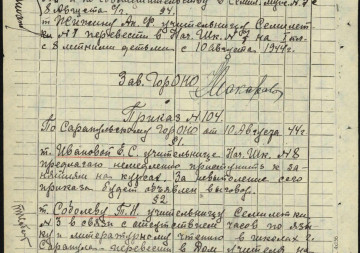 8 Августа с/г.
§4.
т. Жижину Ан. Ф. учительницу Семилет.
№ 1 перевести в Нач. Шк. № 7 на 1 кл.
с 8 летними детьми с 10 Августа 1944 г.
Зав. ГорОНО
Приказ № 104.
По Сарапульскому ГорОНО от 10 Августа 44 г.
§1.
т. Ивановой Е.С. учительнице Нач. Шк. № 8
предлагаю немедленно приступить к за-
нятиям на курсах. За невыполнение сего
приказа будет объявлен выговор.
§2.
т. Соболеву Т.И. учительницу Семилет. шк.
№ 3 в связи с отсутствием часов по язы-
ку и литературному чтению в школах г.
Сарапула перевести в Дом учителя на